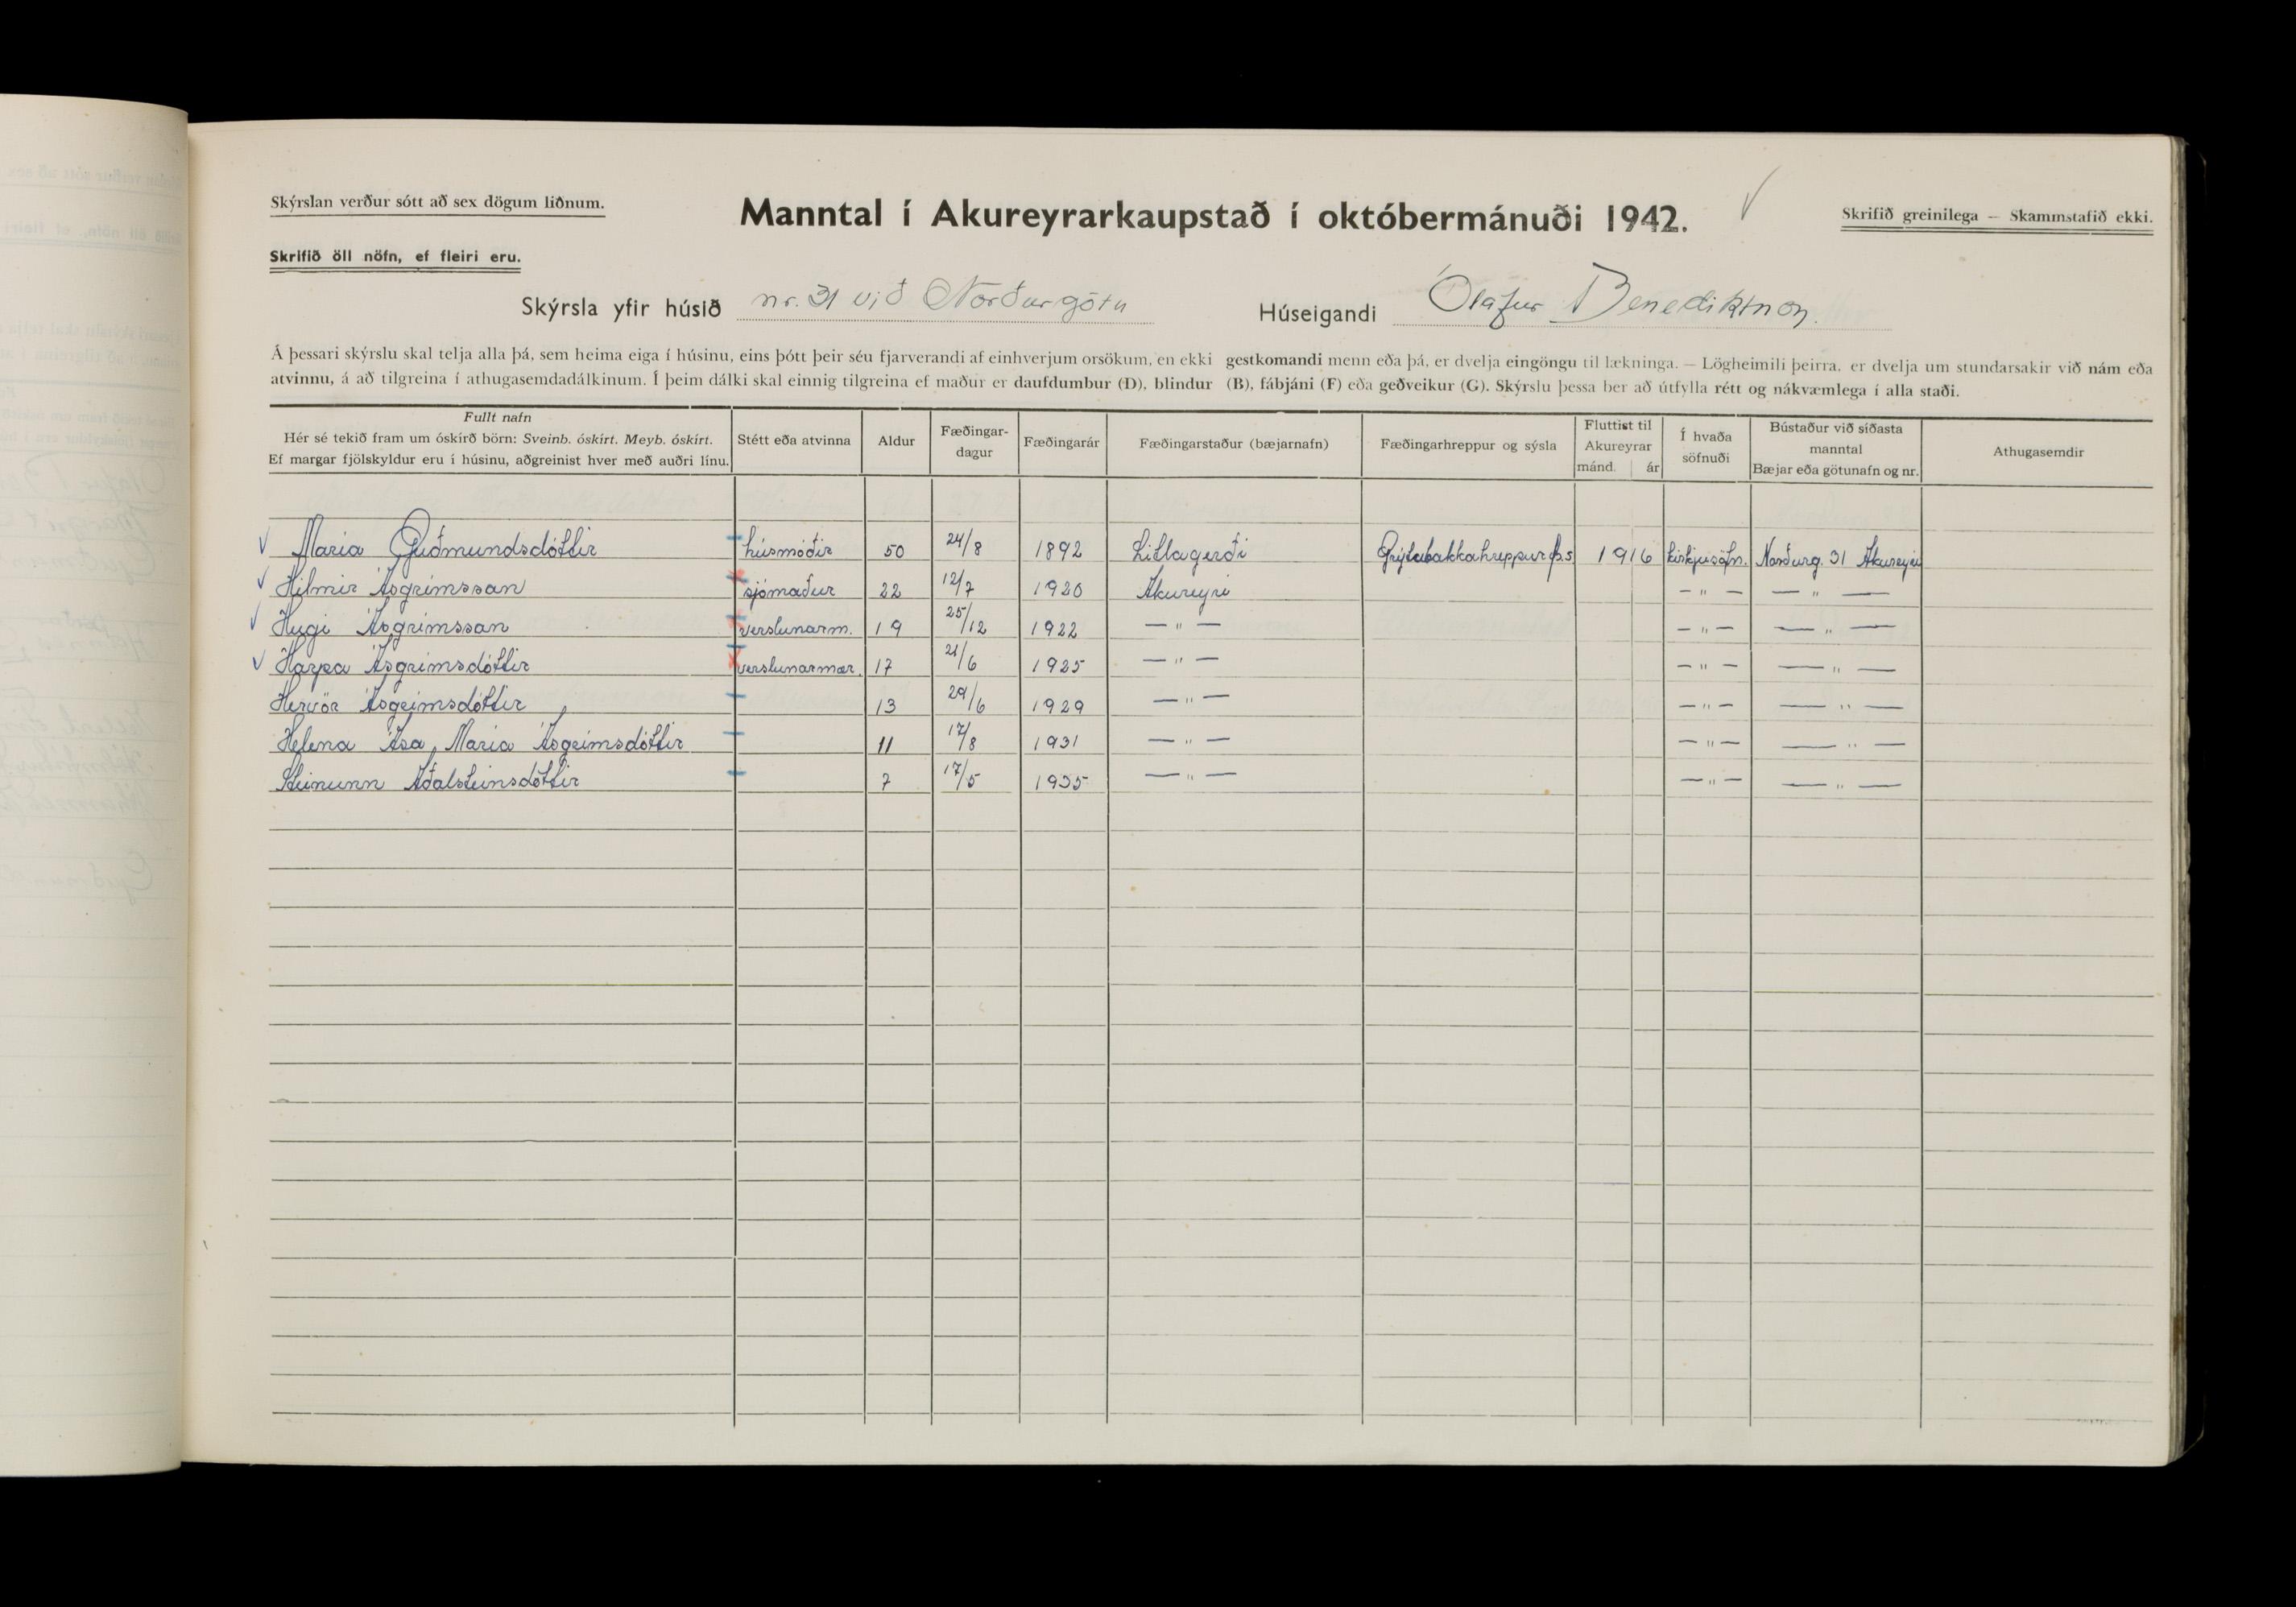 Skýrslan verður sótt að sex dögum liðnum.
Manntal í Akureyrarkaupstað í októbermánuði 1942.
Skrifið greinilega – Skammstafið ekki.
Skrifið öll nöfn, ef fleiri eru.
Skýrsla yfir húsið nr. 31 við Norðurgötu Húseigandi Ólafur Benediktsson.
Á þessari skýrslu skal telja alla þá, sem heima eiga í húsinu, eins þótt þeir séu fjarverandi af einhverjum orsökum, en ekki gestkomandi menn eða þá, er dvelja eingöngu til lækninga. — Lögheimili þeirra, er dvelja um stundarsakir við nám eða
atvinnu, á að tilgreina í athugasemdadálkinum. Í þeim dálki skal einnig tilgreina ef maður er daufdumbur (D), blindur (B), fábjáni (F) eða geðveikur (G). Skýrslu þessa ber að útfylla rétt og nákvæmlega í alla staði.
Fullt nafn
Hér sé tekið fram um óskírð börn: Sveinb. óskírt. Meyb. óskírt.
Ef margar fjölskyldur eru í húsinu, aðgreinist hver með auðri línu.
Stétt eða atvinna
Aldur
Fæðingar-
dagur
Fæðingarár
Fæðingarstaður (bæjarnafn)
Fæðingarhreppur og sýsla
Fluttist til
Akureyrar
mánd. ár
Í hvaða
söfnuði
Bústaður við síðasta
manntal
Bæjar eða götunafn og nr.
Athugasemdir
Maria Guðmundsdóttir húsmóðir 50 24/8 1892 Litlagerði Grýtubakkahreppur Þ.s 1916 kirkjusöfn. Norðurg. 31 Akureyri
Hilmir Ásgrímsson sjómaður 22 12/7 1920 Akureyri — " — — " —
Hugi Ásgrímsson verslunarm. 19 25/12 1922 — " — — " — — " —
Harpa Ásgrímsdóttir verslunarmær. 17 21/6 1925 — " — — " — — " —
Hervör Ásgrímsdóttir 13 29/6 1929 — " — — " — — " —
Helena Ása Maria Ásgrímsdóttir 11 17/8 1931 — " — — " — — " —
Steinunn Aðalsteinsdóttir 7 17/5 1935 — " — — " — — " —